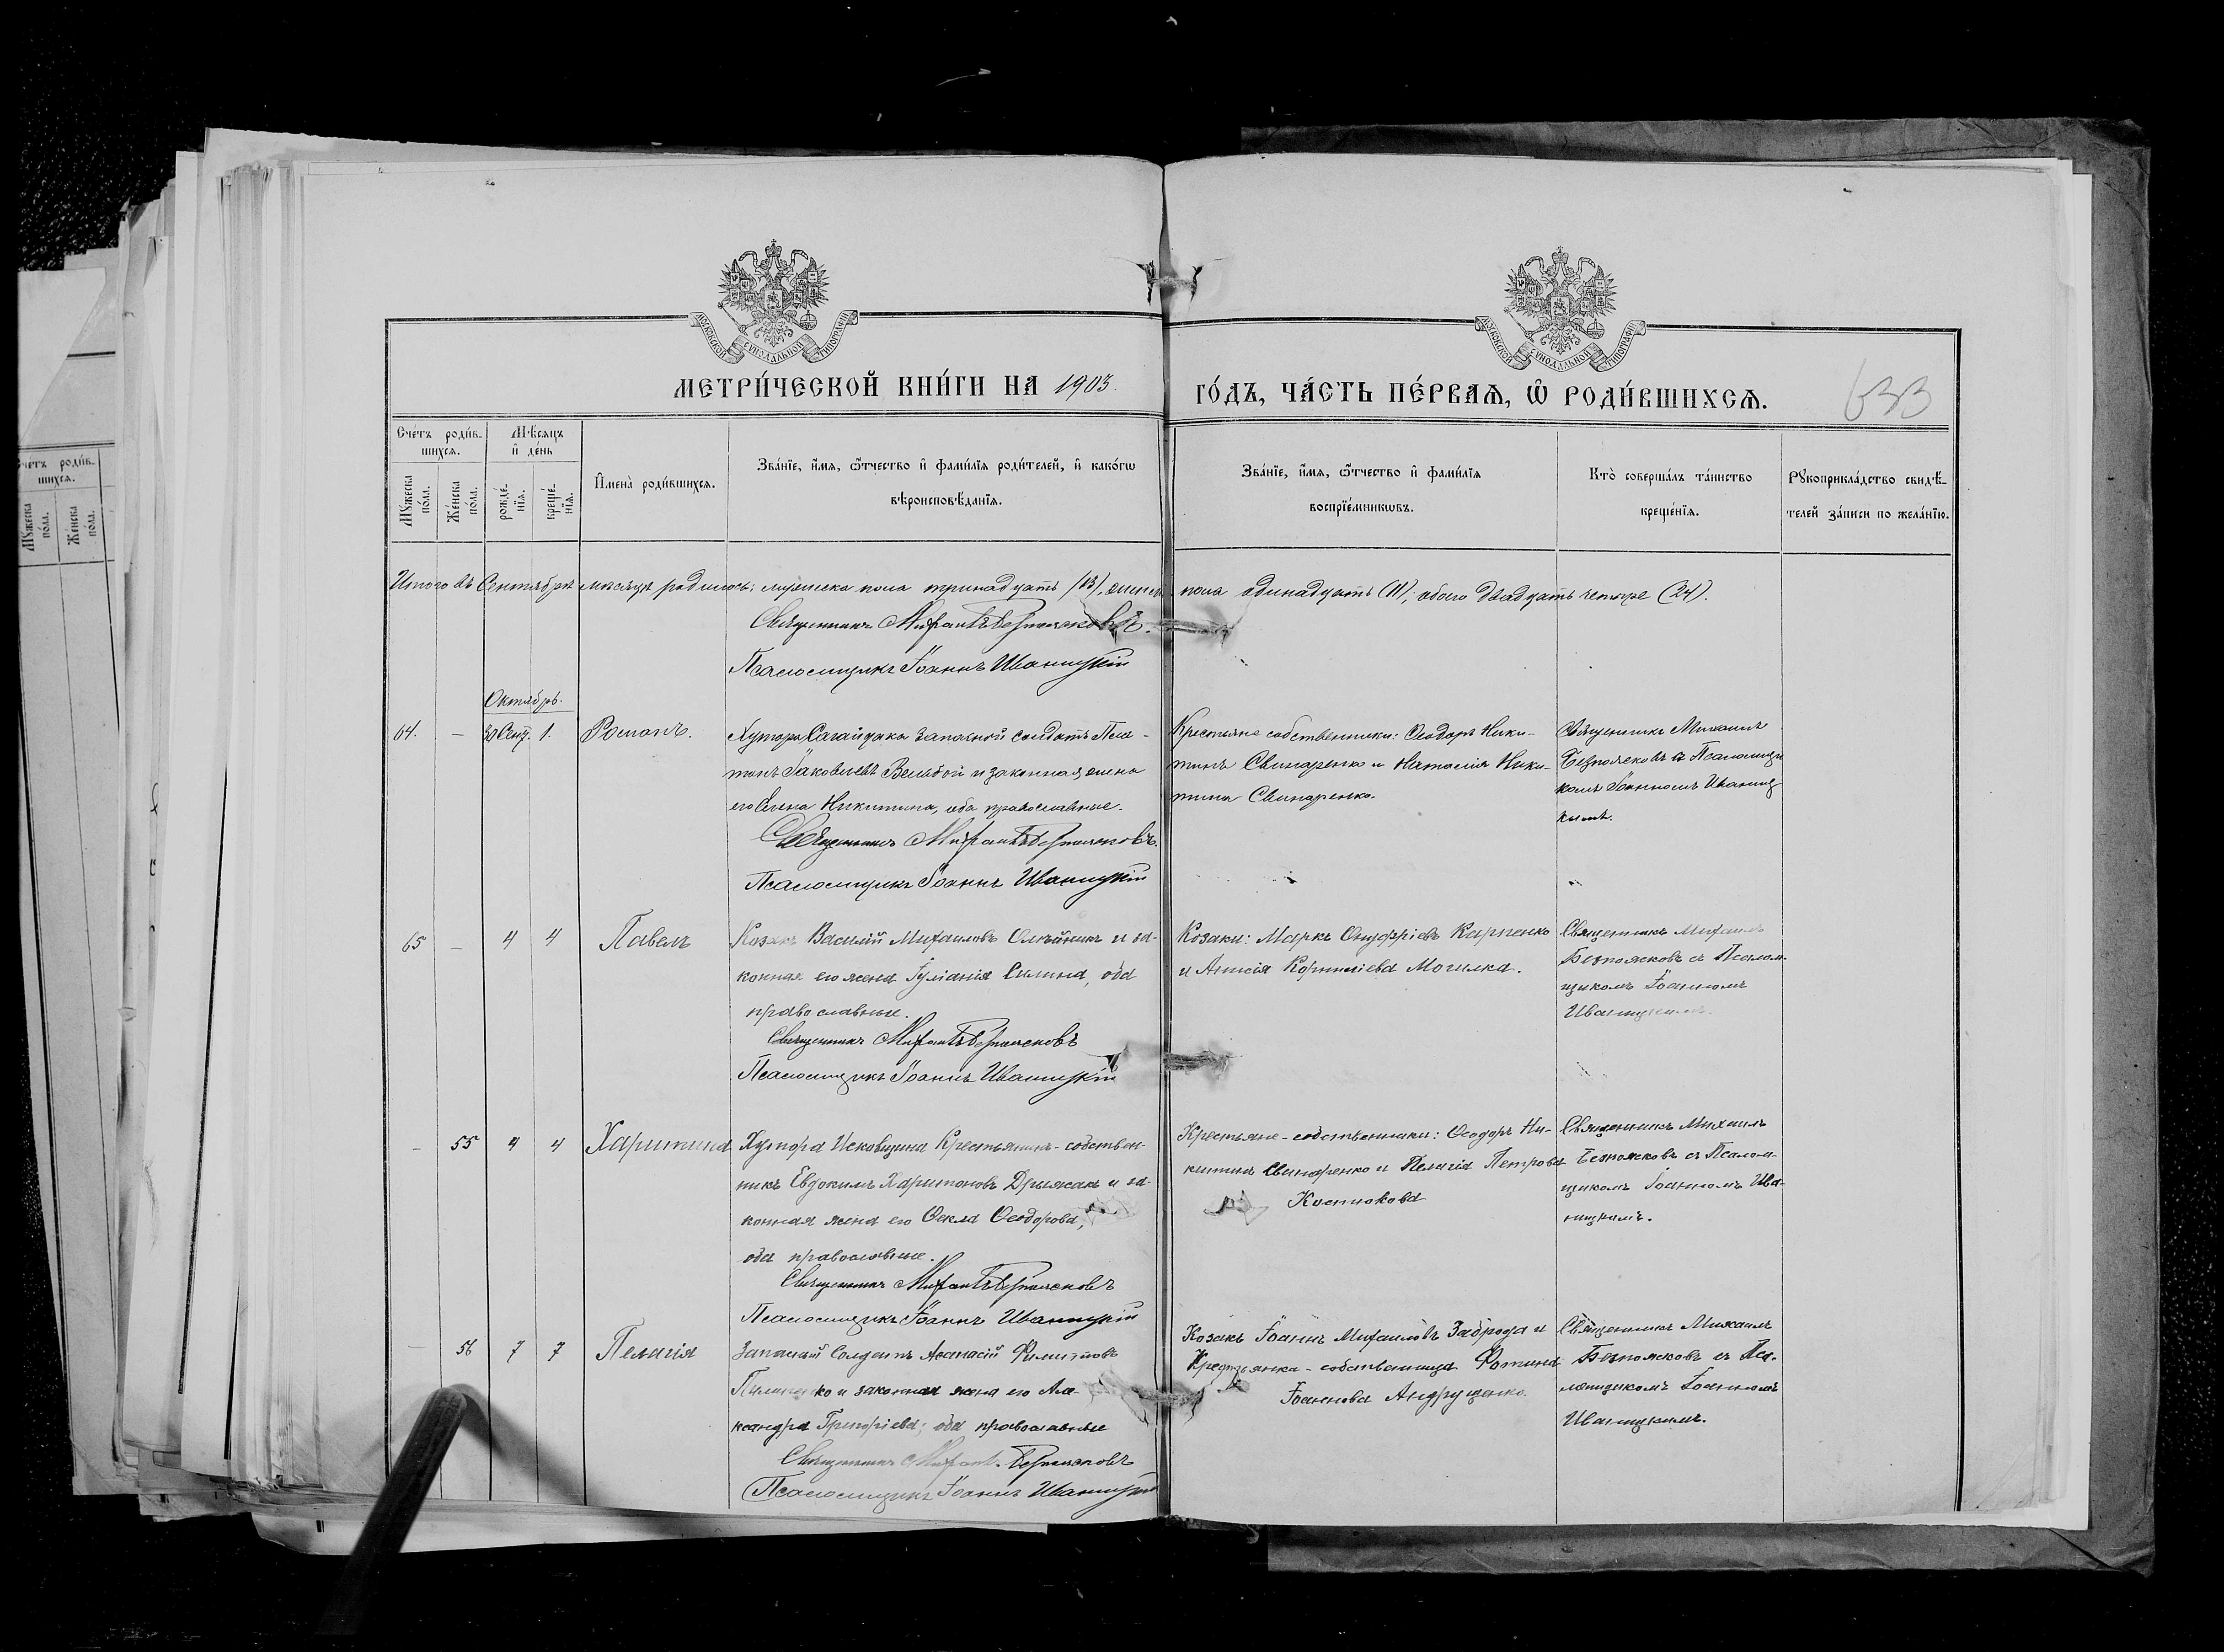 МОСКОВСКОЙ СѴНОДАЛЬНОЙ ТИПОГРАФІИ
МОСКОВСКОЙ СѴНОДАЛЬНОЙ ТИПОГРАФІИ
МЕТРИ́ЧЕСКОЙ КНИ́ГИ НА 1903 ГО́ДЪ, ЧА́СТЬ ПЕ́РВАѦ, Ѡ҆ РОДИ́ВШИХСѦ.
633
Сче́тъ роди́в-
шихсѧ.
Мꙋ́жеска по́ла.
Же́нска по́ла.
Мѣ́сѧцъ
и҆ де́нь
рожде́-
нїѧ.
креще́-
нїѧ.
И҆мена̀ роди́вшихсѧ.
Зва́нїе, и҆́мѧ, ѻ҆́тчество и҆ фами́лїѧ роди́телей, и҆ како́гѡ
вѣроисповѣ́данїѧ.
Зва́нїе, и҆́мѧ, ѻ҆́тчество и҆ фами́лїѧ
воспрїе́мникѡвъ.
Кто̀ соверша́лъ та́инство
креще́нїѧ.
Рꙋкоприкла́дство свидѣ́-
телей за́писи по жела́нїю.
Итого въ Сентябрѣ мѣсяцѣ родилось: мужеска пола тринадцать (13), женска пола одинадцать (11); обоего двадцать четыре (24).
Священникъ Михаилъ Безпоясковъ.
Псаломщикъ Іоаннъ Иваницкій
Октябрь.
64. — 30 Сент. 1. Романъ.
Хутора Сагайдака запасной солдатъ Пла-
тонъ Іаковлевъ Вельбой и законная жена
его Елена Никитина, оба православные.
Священникъ Михаилъ Безпоясковъ.
Псаломщикъ Іоаннъ Иваницкій
Крестьяне собственники: Ѳеодоръ Ники-
тинъ Свинаренко и Наталія Ники-
тина Свинаренко.
Священникъ Михаилъ
Безпоясковъ съ Псаломщи
комъ Іоанномъ Иваниц
кимъ.
65 — 4 4 Павелъ
Козакъ Василій Михаиловъ Олѣйникъ и за-
конная его жена Іуліанія Силина, оба
православные.
Священникъ Михаилъ Безпоясковъ
Псаломщикъ Іоаннъ Иваницкій
Козаки: Маркъ Онуфріевъ Карпенко
и Анисія Корниліева Могилка.
Священникъ Михаилъ
Безпоясковъ съ Псалом-
щикомъ Іоанномъ
Иваницкимъ.
— 55 4 4 Харитина
Хутора Исковщина Крестьянинъ-собствен-
никъ Евдокимъ Харитоновъ Дрижакъ и за-
конная жена его Ѳекла Ѳеодорова,
оба православные.
Священникъ Михаилъ Безпоясковъ
Псаломщикъ Іоаннъ Иваницкій
Крестьяне-собственники: Ѳеодоръ Ни-
китинъ Свинаренко и Пелагія Петрова
Костюкова
Священникъ Михаилъ
Безпоясковъ съ Псалом-
щикомъ Іоанномъ Ива-
ницкимъ.
— 56 7 7 Пелагія
Запасный Солдатъ Аѳанасій Филипповъ
Пилипенко и законная жена его Але-
ксандра Григоріева; оба православные
Священникъ Михаилъ Безпоясковъ
Псаломщикъ Іоаннъ Иваницкій
Козакъ Іоаннъ Михаиловъ Заброда и
Крестьянка-собственница Фотина
Іоаннова Андрущенко.
Священникъ Михаилъ
Безпоясковъ съ Пса-
ломщикомъ Іоанномъ
Иваницкимъ.